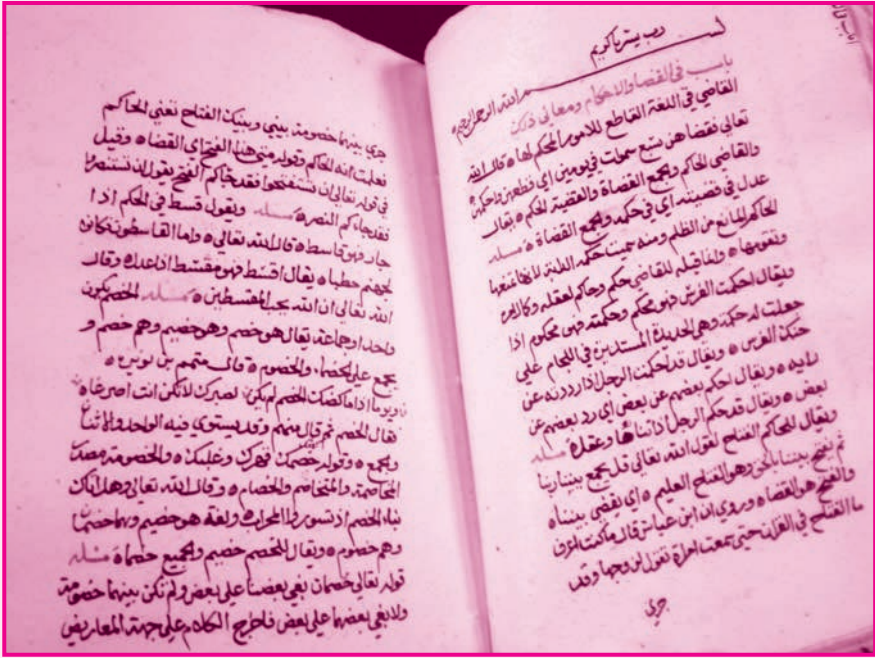 رب يسر يا كريم
بسم الله الرحمن الرحيم
باب في القضا والاحكام ومعاني ذلك
القاضي في اللغة القاطع للامور المحكم لها ه قال الله
تعالى فقضاهن سبع سموات في يومين اي قطعهن واحكمهن
والقاضي الحاكم ويجمع القضاة والقضية الحكم ه يقال
عدل في قضيته اي في حكمه ويجمع القضاة ه مسلة
الحاكم المانع من الظلم ومنه سميت حكمة الدابة لانها تمنعها
وتقومها ه وانما قيل للقاضي حكم وحاكم لعقله وكا
ويقال احكمت الفرس فهو محكم وحكمته فهو محكوم اذا
جعلت له حكمة وهي الحديدة المستديرة في اللجام على
حنك الفرس ه ويقال قد احكمت الرجل اذا رددته عن
رايه ه ويقال احكم بعضهم عن بعض اي رد بعضهم عن
بعض ه ويقال قد حكم الرجل اذا تناها وعقله مسلة
ويقال للحاكم الفتاح لقول الله تعالى قل يجمع بيننا ربنا
ثم يفتح بيننا بالحق وهو الفتاح العليم ه اي يقضي بيننا ه
والفتح هو القضا ه وروي ان ابن عباس قال ما كنت ادري
ما الفتاح في القران حتى سمعت امراة تقول لزوجها وقد
جرى
جرى بينهما خصومة بيني وبينك الفتاح تعني الحاكم
فعلمت انه الحاكم وقوله متى هذا الفتح اي القضا ه وقيل
في قوله تعالى ان تستفتحوا فقد جاكم الفتح يقول ان تستنصروا
فقد جاءكم النصر ه مسلة ويقول قسط في الحكم اذا
جار فهو قاسط ه قال الله تعالى ه واما القاسطون فكانوا
لجهنم حطبا ه يقال اقسط فهو مقسط اذا عدل ه وقال
الله تعالى ان الله يحب المقسطين ه مسلة الخصم يكون
واحدا وجماعة يقال هو خصم وهو خصيم وهم خصم و
يجمع على الخصما والخصوم ه قال متمم بن نويره ه
ويوما اذا ما كضك الخصم لم يكن نصيرك لا تكن انت اضرعا ه
فقال الخصم ثم قال منهم وقد يستوي فيه الواحد والاثنا
والجمع ه وقوله خصمك قهرك وغلبك ه والخصومة مصدر
المخاصمة والتخاصم والخصام ه وقال الله تعالى وهل اتاك
نباء الخصم اذ تسوروا المحراب ه ولغة هو خصيم وهما خصما
وهم خصوم ه ويقال للخصم خصيم والجميع خصماه مسلة
قوله تعالى خصمان بغى بعضنا على بعض ولم تكن بينهما خصومة
ولا بغى بعضهما على بعض فاخرج الكلام على جهة المعاريض